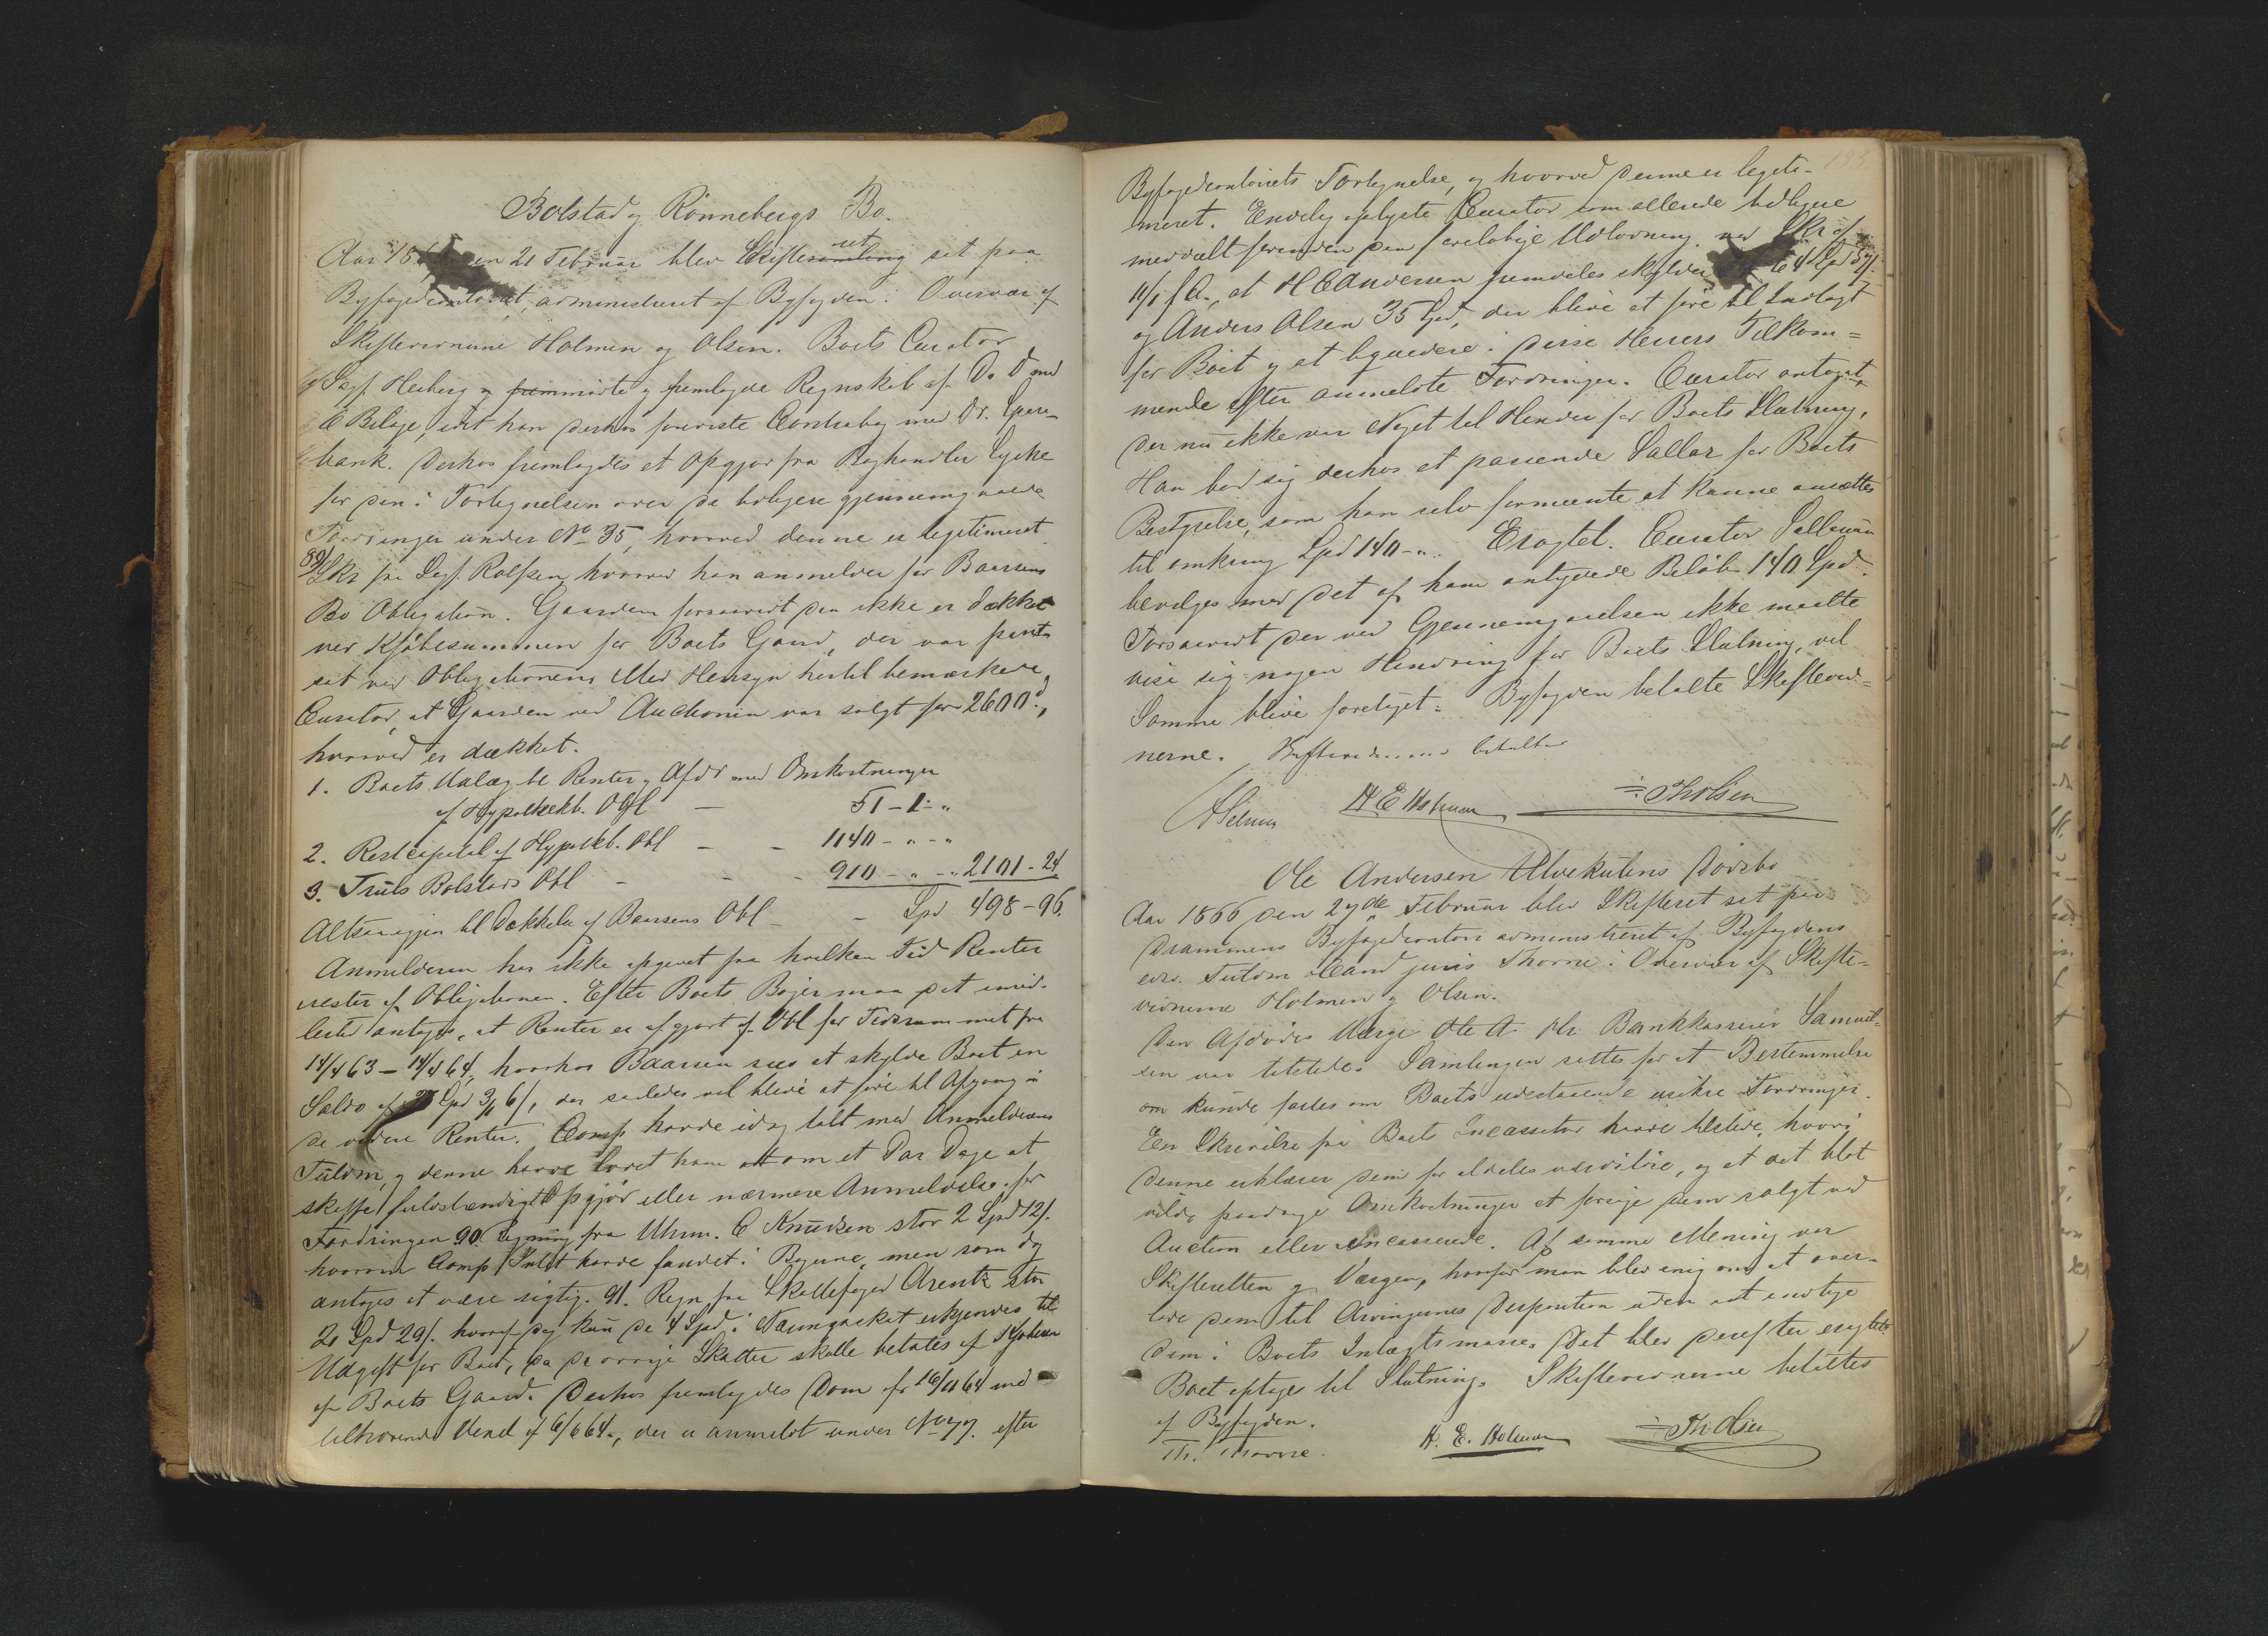 Bolstad og Rønnebergs Bo.
Aar 186 den 21 Februar blev Skiftesamling ret sat paa
Byfogedcontoret, administreret af Byfogden i Overvær af
Skiftevidnerne Holmen og Olsen. Boets Curator
Sagf. Heiberg og fremmødte og fremlagde Regnskab af D. D med
E Bilage, idet han derhos foreviste Contrabog med Dr. Spare-
bank. Derhos fremlagdes et Opgjør fra Boghandler Lyche
for den i Fortegnelsen over de tidligere gjennemgaaede
Fordringer under No 35, hvorved denne er legitimeret.
89/ Skr fra Sagf. Rolfsen, hvorved han anmelder for Baarsens
Bo Obligation. Gaarden forsaavidt den ikke er dækket
ved Kjøbesummen for Boets Gaard, der var pant-
sat ved Obligationen. Med Hensyn hertil bemærkede
Curator, at Gaarden ved Auctionen var solgt for 2600,
hvorved er dækket.
1. Boets Udlæg til Renter og Afdr med Omkostninger
af Hypothekb. Obl — 51 - 1 - "
2. Restcapital af Hypothb. Obl - - 1140 - " - "
3. Truls Bolstads Obl - - - 910 - " - " 2101 - 24
Altsaa igjen til Dækkelse af Baarsens Obl - - Spd 498 - 96.
Anmelderen har ikke opgivet fra hvilken Tid Renter
rester af Obligationen. Efter Boets Bøger maa det imid-
lertid antages, at Renter er afgjort af Obl for Tidsrummet fra
14/4 63 - 14/4 64, hvorhos Baarsen sees at skylde Boet en
Saldo af Spd 3 6/, der saaledes vil blive at føre til Afgang i
de videre Renter. Comp havde idag talt med Anmelderens
Fuldm, og denne havde lovet ham at om et Par Dage at
skaffe fuldstændigt Opgjør eller nærmere Anmeldelse for
Fordringen 90. Regning fra Uhrm. C Knudsen stor 2 Spd 12/.
hvorom Comp Intet havde fundet i Bøgerne, men som dog
antages at være rigtig. 91. Regn fra Skattefoged Arentz stor
20 Spd 29/. hvoraf dog kun de 4 Spd i Næringsskat erkjendes til
Udgift for Boet, da de øvrige Skatter skulle betales af Kjøberen
af Boets Gaard. Derhos fremlagdes Dom af 16/11 64 med
tilhørende Vexel af 6/6 64., der er anmeldt under No 77. efter
Byfogedcontorets Fortegnelse, og hvorved denne er legiti-
meret. Endelig oplyste Curator som allerede tidligere
meddelt forinden den foreløbige Udlodning ved Skr af
11/1 f A., at H C Andersen fremdeles skylder 64 Spd 52/.
og Anders Olsen 35 Spd, der blive at føre til Indtægt
for Boet og at liqvidere i disse Herrers Tilkom=
mende efter anmeldte Fordringer. Curator antog at
der nu ikke var Noget til Hinder for Boets Slutning.
Han bad sig derhos et passende Sallar for Boets
Bestyrelse, som han selv formeente at kunne ansættes
til omkring Spd 140 - ". Eragtet. Curator Sallarium
bevilges med det af ham antydede Beløb 140 Spd.
Forsaavidt der ved Gjennemgaaelsen ikke maatte
vise sig nogen Hindring for Boets Slutning, vil
Samme blive foretaget. Byfogden betalte Skiftevid=
nerne. Skiftevidnerne betalte
H E Holmen Th Olsen
Ole Andersen Ulvekulens Dødsbo
Aar 1866 den 27de Februar blev Skifteret sat paa
Drammens Byfogedcontor administreret af Byfogdens
edsv. Fuldm Cand juris Thorne i Overvær af Skifte=
vidnerne Holmen og Olsen.
Den Afdødes Værge Ole A. Hr Bankkasserer Samuel=
sen var tilstede. Samlingen sattes for at Bestemmelse
om kunde fattes om Boets udestaaende usikre Fordringer.
En Skrivelse fra Boets Incassator havde tilstede, hvori
Denne erklærer dem for aldeles uerholdelige, og at det blot
vilde paadrage Omkostninger at forsøge dem solgt ved
Auction eller incasserede. Af samme Mening var
Skifteretten og Værgen, hvorfor man blev enig om at over-
lade dem til Arvingernes Disposition uden at indtage
dem i Boets Indtægtsmasse. Det blev derefter eragtet
Boet optages til Slutning. Skiftevidnerne betaltes
af Byfogden.
Th. Thorne. H. E. Holmen Th Olsen